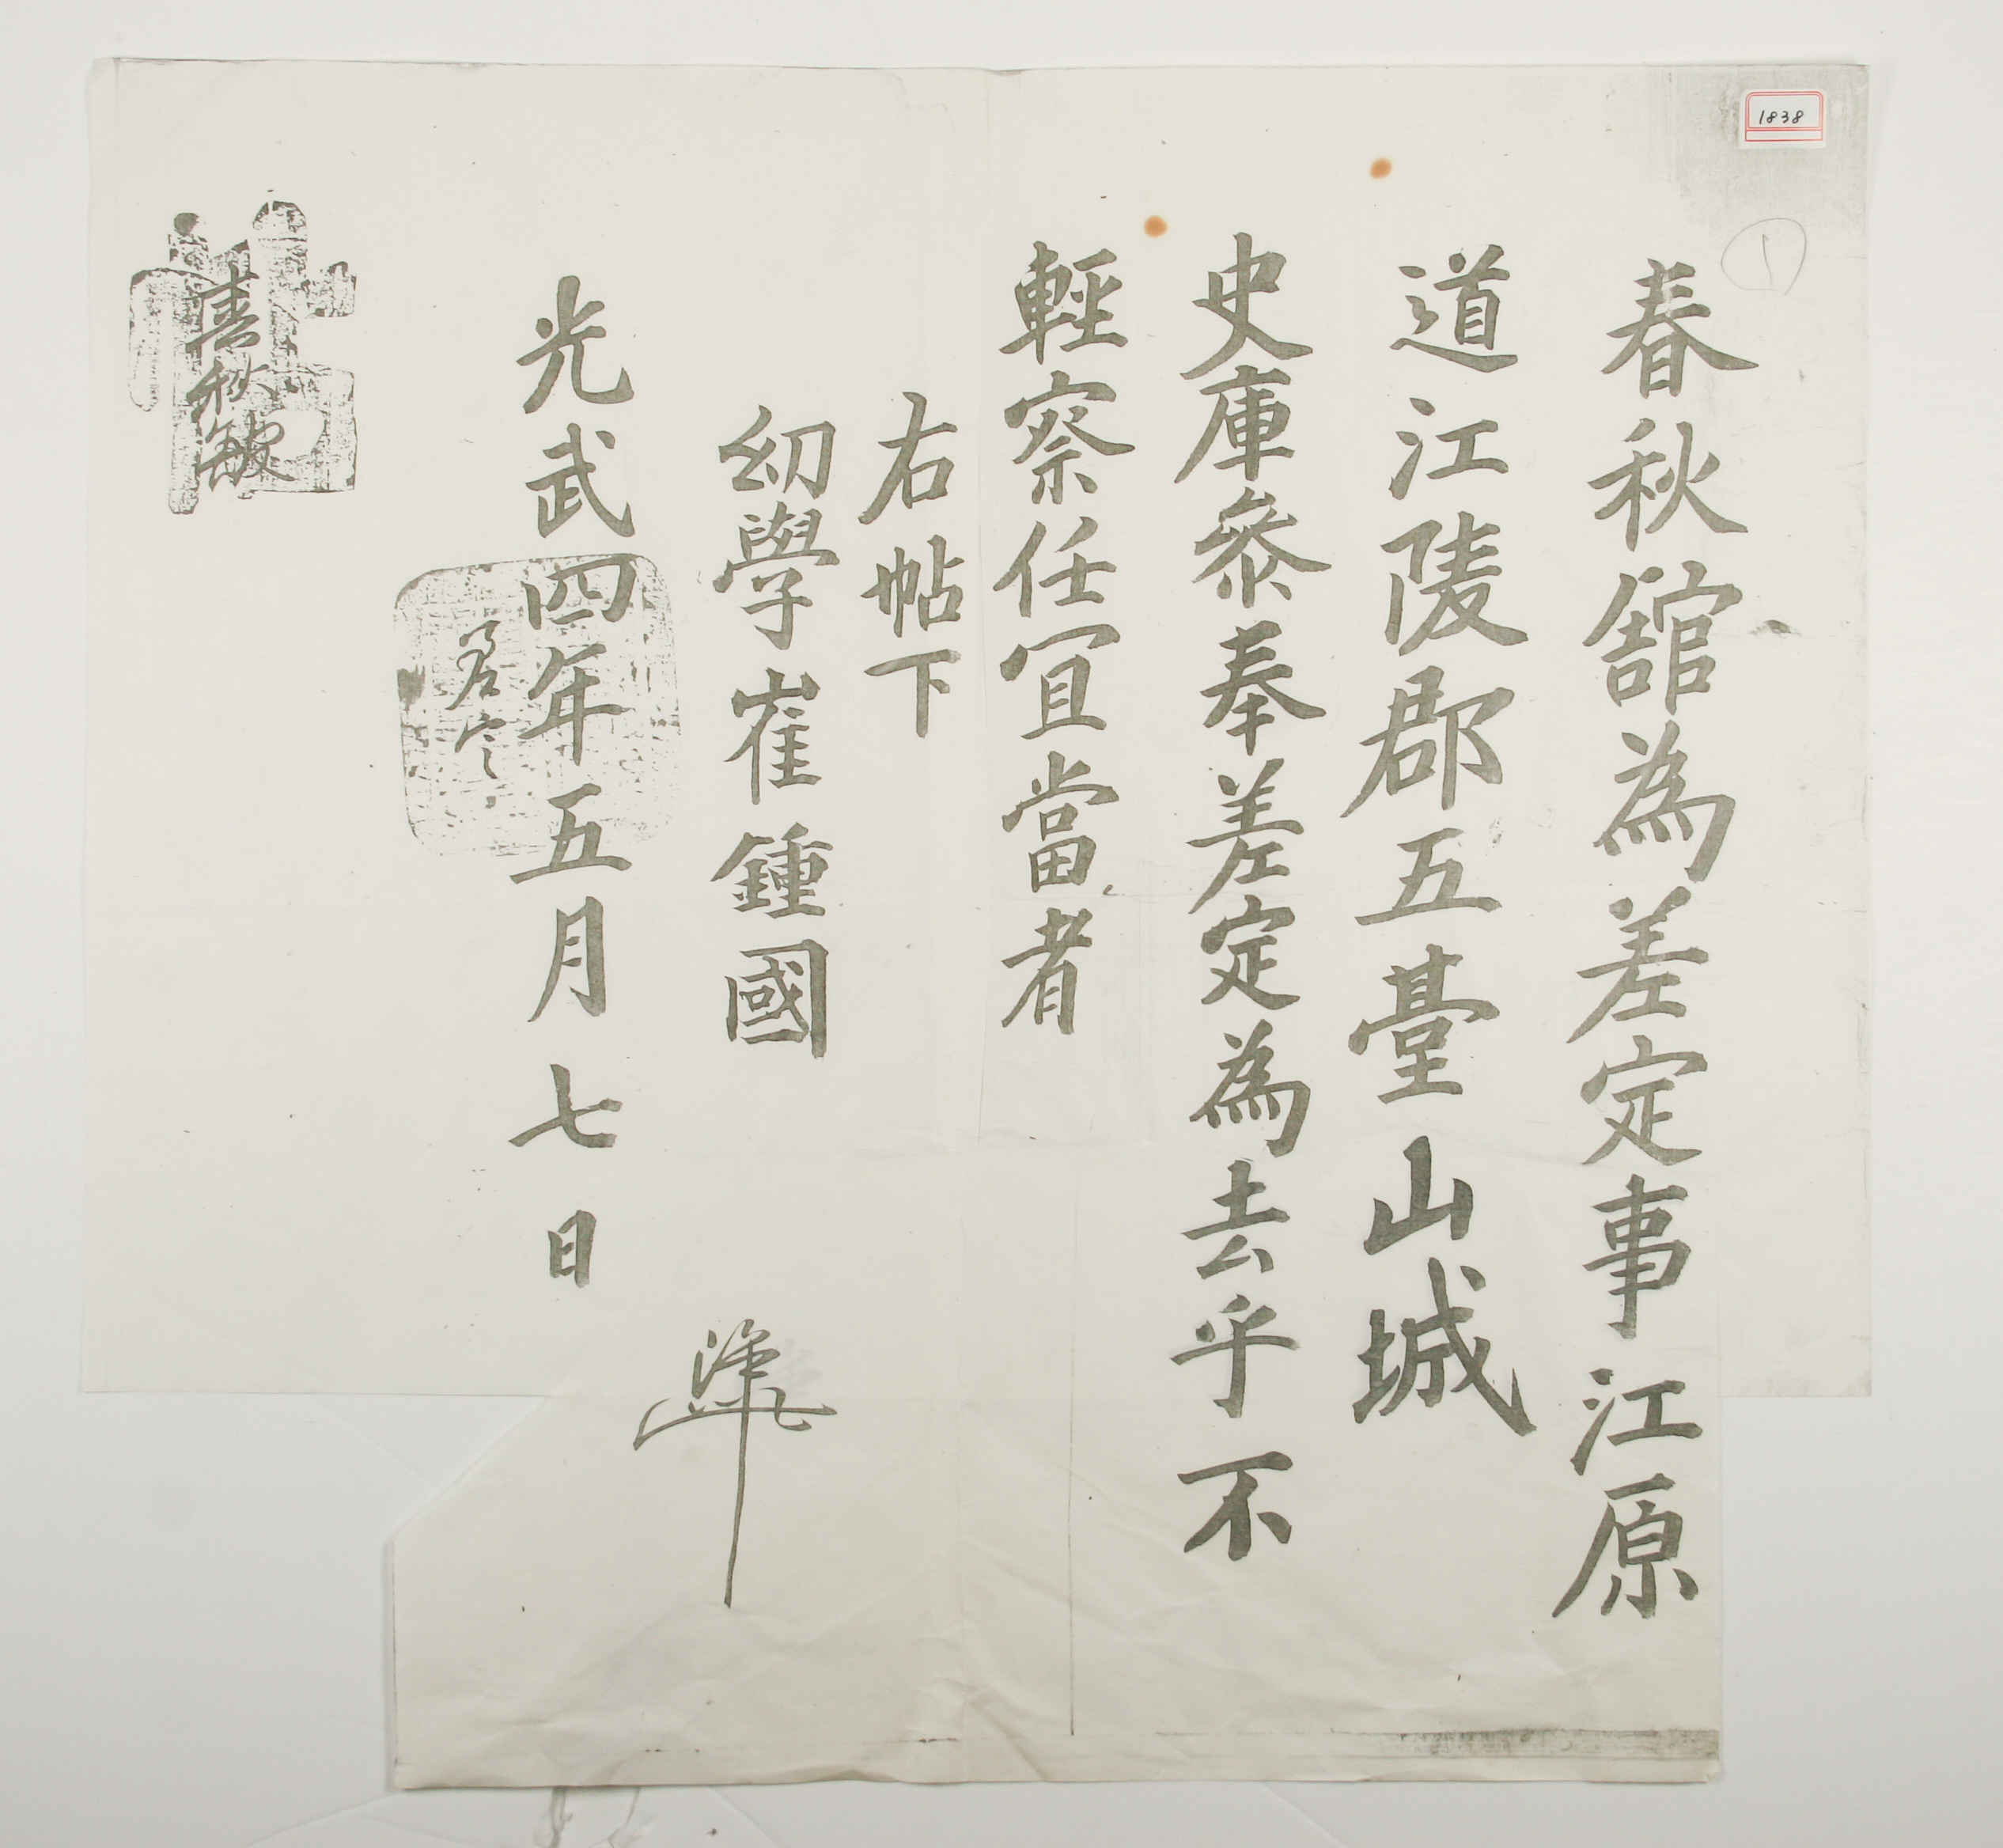 1838
春秋舘為差定事江原
道江陵郡五臺山城
史庫叅奉差定為去乎不
輕察任宜當者
右帖下
幼學崔鍾國
光武四年五月七日
春秋